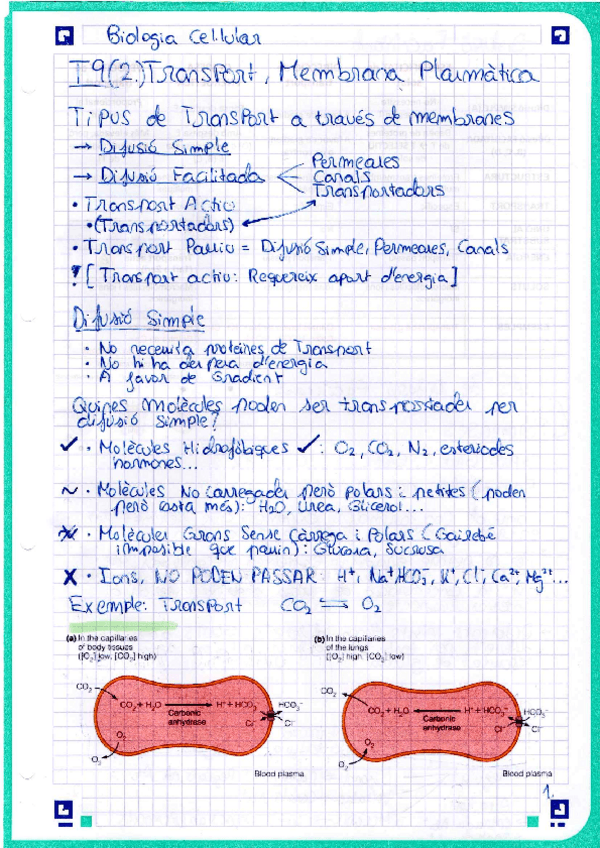 Biologia Cellular
T9(2.) Transport, Membrana Plasmàtica
Tipus de Transport a través de membranes
→ Difusió Simple
→ Difusió Facilitada < Permeases
Canals
Transportadors
• Transport Actiu
• (Transportadors)
• Transport Passiu = Difusió Simple, Permeases, Canals
! [Transport actiu: Requereix aport d'energia]
Difusió Simple
• No necessita proteines de Transport
• No hi ha despesa d'energia
• A favor de Gradient
Quines molècules poden ser transportades per
difusió simple?
✓ • Molècules Hidrofòbiques ✓: O₂, CO₂, N₂, esteroides
hormones...
~ • Molècules No carregades però polars i petites (poden
però costa més): H₂O, Urea, Glicerol...
• Molècules Grans Sense Càrrega i Polars (Gairebé
impossible que passin): Glucosa, Sucrosa
X • Ions, NO PODEN PASSAR: H⁺, Na⁺, HCO₃⁻, K⁺, Cl⁻, Ca²⁺, Mg²⁺...
Exemple: Transport CO₂ ⇌ O₂
(a) In the capillaries
of body tissues
([O₂] low, [CO₂] high)
CO₂
CO₂ + H₂O → H⁺ + HCO₃⁻
Carbonic
anhydrase
HCO₃⁻
Cl⁻
Cl⁻
O₂
O₂
Blood plasma
(b) In the capillaries
of the lungs
([O₂] high, [CO₂] low)
CO₂
CO₂ + H₂O ← H⁺ + HCO₃⁻
Carbonic
anhydrase
HCO₃⁻
Cl⁻
Cl⁻
O₂
O₂
Blood plasma
1.